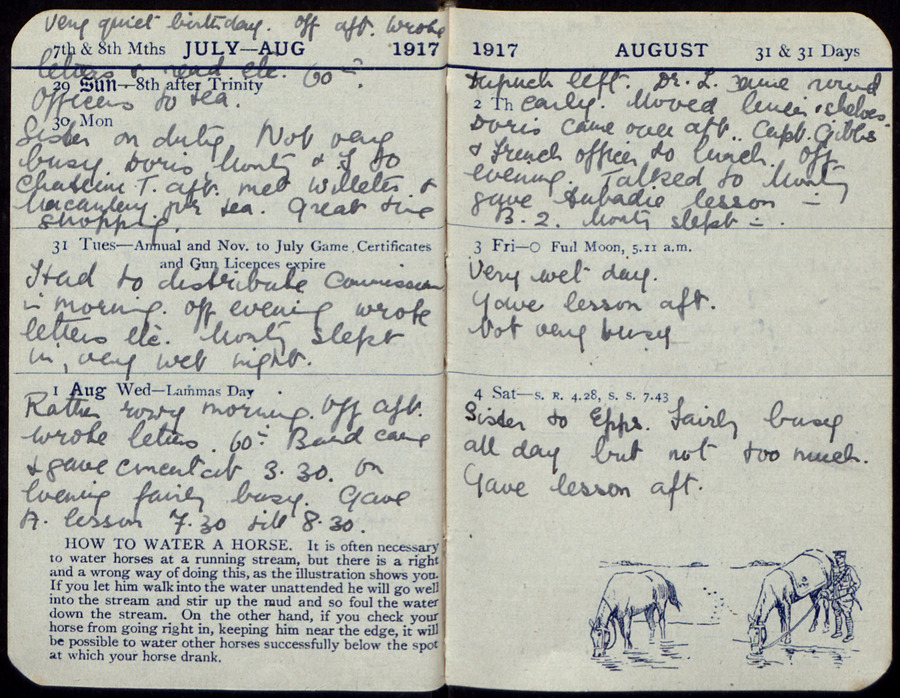 Very quiet birthday. Off aft. wrote
7th & 8th Mths JULY—AUG 1917
letters & read etc. 60
29 Sun—8th after Trinity
Officers to tea.
30 Mon
Sister on duty Not very
busy. Doris, Monty & I to
T. aft. met &
for tea. Great time
shopping.
31 Tues—Annual and Nov. to July Game Certificates
and Gun Licences expire
Had to distribute
in morning. off evening wrote
letters etc. Monty slept
in, very wet night.
1 Aug Wed—Lammas Day
Rather rowy morning. Off aft.
wrote letters. 60 Band came
& gave concert at 3.30. On
evening fairly busy. Gave
A. lesson 7.30 till 8.30.
HOW TO WATER A HORSE. It is often necessary
to water horses at a running stream, but there is a right
and a wrong way of doing this, as the illustration shows you.
If you let him walk into the water unattended he will go well
into the stream and stir up the mud and so foul the water
down the stream. On the other hand, if you check your
horse from going right in, keeping him near the edge, it will
be possible to water other horses successfully below the spot
at which your horse drank.
1917 AUGUST 31 & 31 Days
left. Dr. L. came round
2 Th early. Moved linen & shelves.
Doris came over aft.. Capt. Gibbs
& French officer to lunch. Off
evening. Talked to Monty
gave lesson
B. 2. Monty slept
3 Fri—O Full Moon, 5.11 a.m.
Very wet day.
Gave lesson aft.
Not very busy
4 Sat—S. R. 4.28, S. S. 7.43
Sister to Epps. Fairly busy
all day but not too much.
Gave lesson aft.